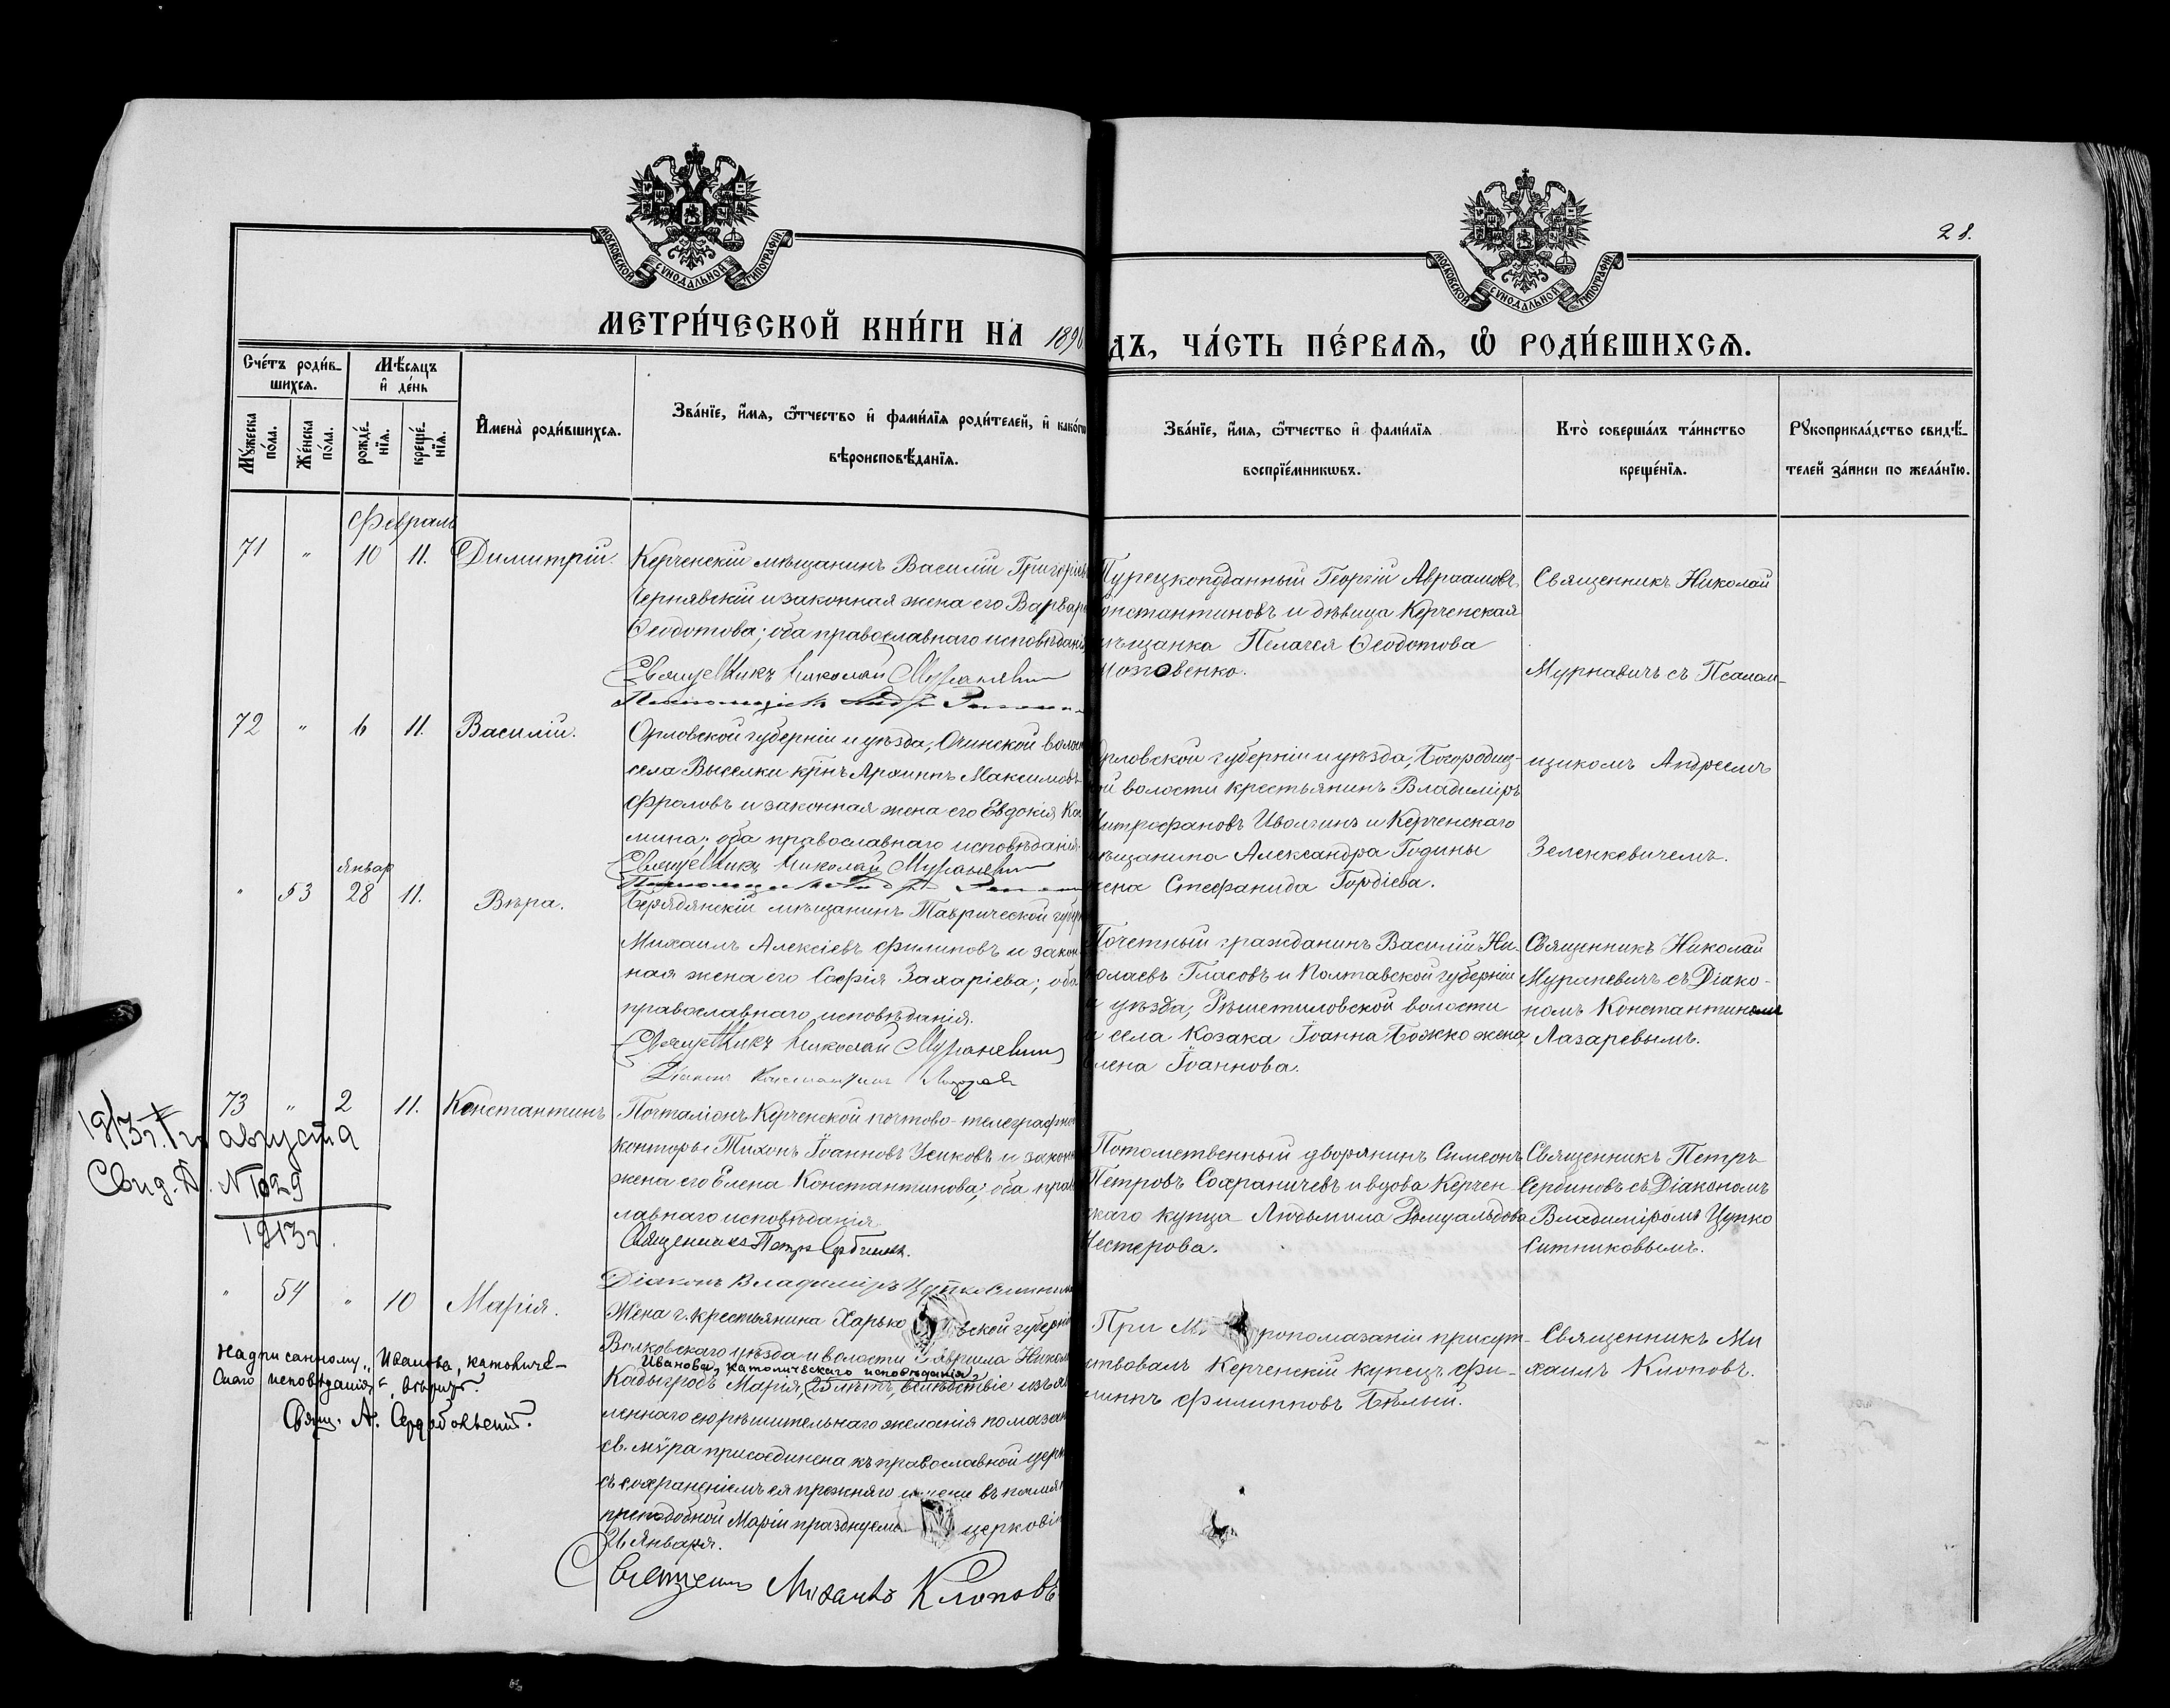 28.
МОСКОВСКОЙ СУНОДАЛЬНОЙ ТИПОГРАФІИ
МОСКОВСКОЙ СУНОДАЛЬНОЙ ТИПОГРАФІИ
МЕТРИ́ЧЕСКОЙ КНИ́ГИ НА 189
ДЪ, ЧА́СТЬ ПЕ́РВАѦ, Ѡ РОДИ́ВШИХСѦ.
Сче́тъ роди́в-
шихсѧ.
Мѣ́сяцъ
и де́нь
Му́жеска
по́ла.
Же́нска
по́ла.
рожде́-
нїѧ.
креще́-
нїѧ.
Имена̀ роди́вшихсѧ.
Зва́нїе, и́мѧ, ѻ́тчество и фами́лїѧ роди́телей, и како́гѡ
вѣроисповѣ́данїѧ.
Зва́нїе, и́мѧ, ѻ́тчество и фами́лїѧ
воспрїе́мникѡвъ.
Кто̀ соверша́лъ та́инство
креще́нїѧ.
Рꙋкоприкла́дство свидѣ́-
телей за́писи по жела́нїю.
Февраль
71 " 10 11. Димитрій.
Керченскій мѣщанинъ Василій Григорьев
Чернявскій и законная жена его Варвара
Ѳеодотова; оба православнаго исповѣданія
Священникъ Николай Мураневич
Турецкоподанный Георгій Авраамовъ
Константиновъ и дѣвица Керченская
мѣщанка Пелагея Ѳеодотова
Мозговенко.
Священникъ Николай
Мурнавичъ съ Псалом-
72 " 6 11. Василій.
Орловской губерніи и уѣзда, волос
села Выселки крн͠ъ Архиппъ Максимовъ
Фроловъ и законная жена его Евдокія Ко
мина; оба православнаго исповѣданія.
Священникъ Николай Мураневич
Орловской губерніи и уѣзда, Богородиц-
ой волости крестьянинъ Владиміръ
Митрофановъ Иволгинъ и Керченскаго
мѣщанина Александра Години
жена Стефанида Гордіева.
щикомъ Андреемъ
Зеленкевичемъ.
Январ
" 53 28 11. Вѣра.
Бердянскій мѣщанинъ Таврической губер
Михаилъ Алексіевъ Филиповъ и закон
ная жена его Софія Захаріева; оба
православнаго исповѣданія.
Священникъ Николай Мураневич
Діаконъ Константинъ Лазарев
Почетный гражданинъ Василій Ни-
колаевъ Гласовъ и Полтавской губерніи
и уѣзда, Рѣшетиловской волости
и села козака Іоанна Божко жена
Елена Іоаннова.
Священникъ Николай
Мураневичъ съ Діако-
номъ Константиномъ
Лазаревымъ.
73 " 2 11. Константинъ
Почталіонъ Керченской почтово-телеграфной
конторы Тихонъ Іоанновъ Усиковъ и закон
жена его Елена Константинова; оба прав
лавнаго исповѣданія
Священникъ Петръ Сербиновъ.
Діаконъ Владиміръ Цупко Ситник
Потомственный дворянинъ Симеонъ
Петровъ Сахраничевъ и вдова Керчен-
скаго купца Людьмила Ромуальдова
Нестерова.
Священникъ Петръ
Сербиновъ съ Діакономъ
Владиміромъ Цупко
Ситниковымъ.
1913 г.
августа
Свид. №1029
1913 г.
" 54 " 10 Марія.
Жена г. крестьянина Харько вской губерніи
Волковскаго уѣзда и волости Гавріила Никол
Иванова, католическаго исповѣданія,
Кадыгробъ Марія, 25 лѣтъ, вслѣдствіе изъяв
леннаго ею рѣшительнаго желанія помазан
св. мѵра присоединена къ православной церк
съ сохраненіемъ ея прежняго имени въ памя
преподобной Маріи празднуемо церковію
26 Января.
Священникъ Михаилъ Клоповъ
При М ропомазаніи присут-
ствовалъ Керченскій купецъ Фи-
липпъ Филипповъ Бѣлый.
Священникъ Ми
хаилъ Клоповъ.
Надписанному „Иванова, католиче-
скаго исповѣданія" вѣрить.
Свящ. А. Сердобольскій.